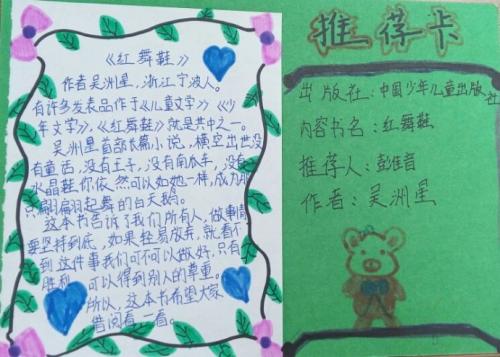 《红舞鞋》
作者吴洲星,浙江宁波人。
有许多发表品作于《儿童文学》《少
年文学》,《红舞鞋》就是其中之一。
吴洲星首部长篇小说,横空出世没
有童话,没有王子,没有南瓜车,没有
水晶鞋你依然可以如她一样,成为那
只翩翩起舞的白天鹅。
这本书告诉了我们所有人,做事情
要坚持到底,如果轻易放弃,就看不
到这件事我们可不可以做好,只有
胜利,可以得到别人的尊重。
所以,这本书希望大家
借阅看一看。
推荐卡
出版社:中国少年儿童出版社
内容书名:红舞鞋
推荐人:彭佳音
作者:吴洲星